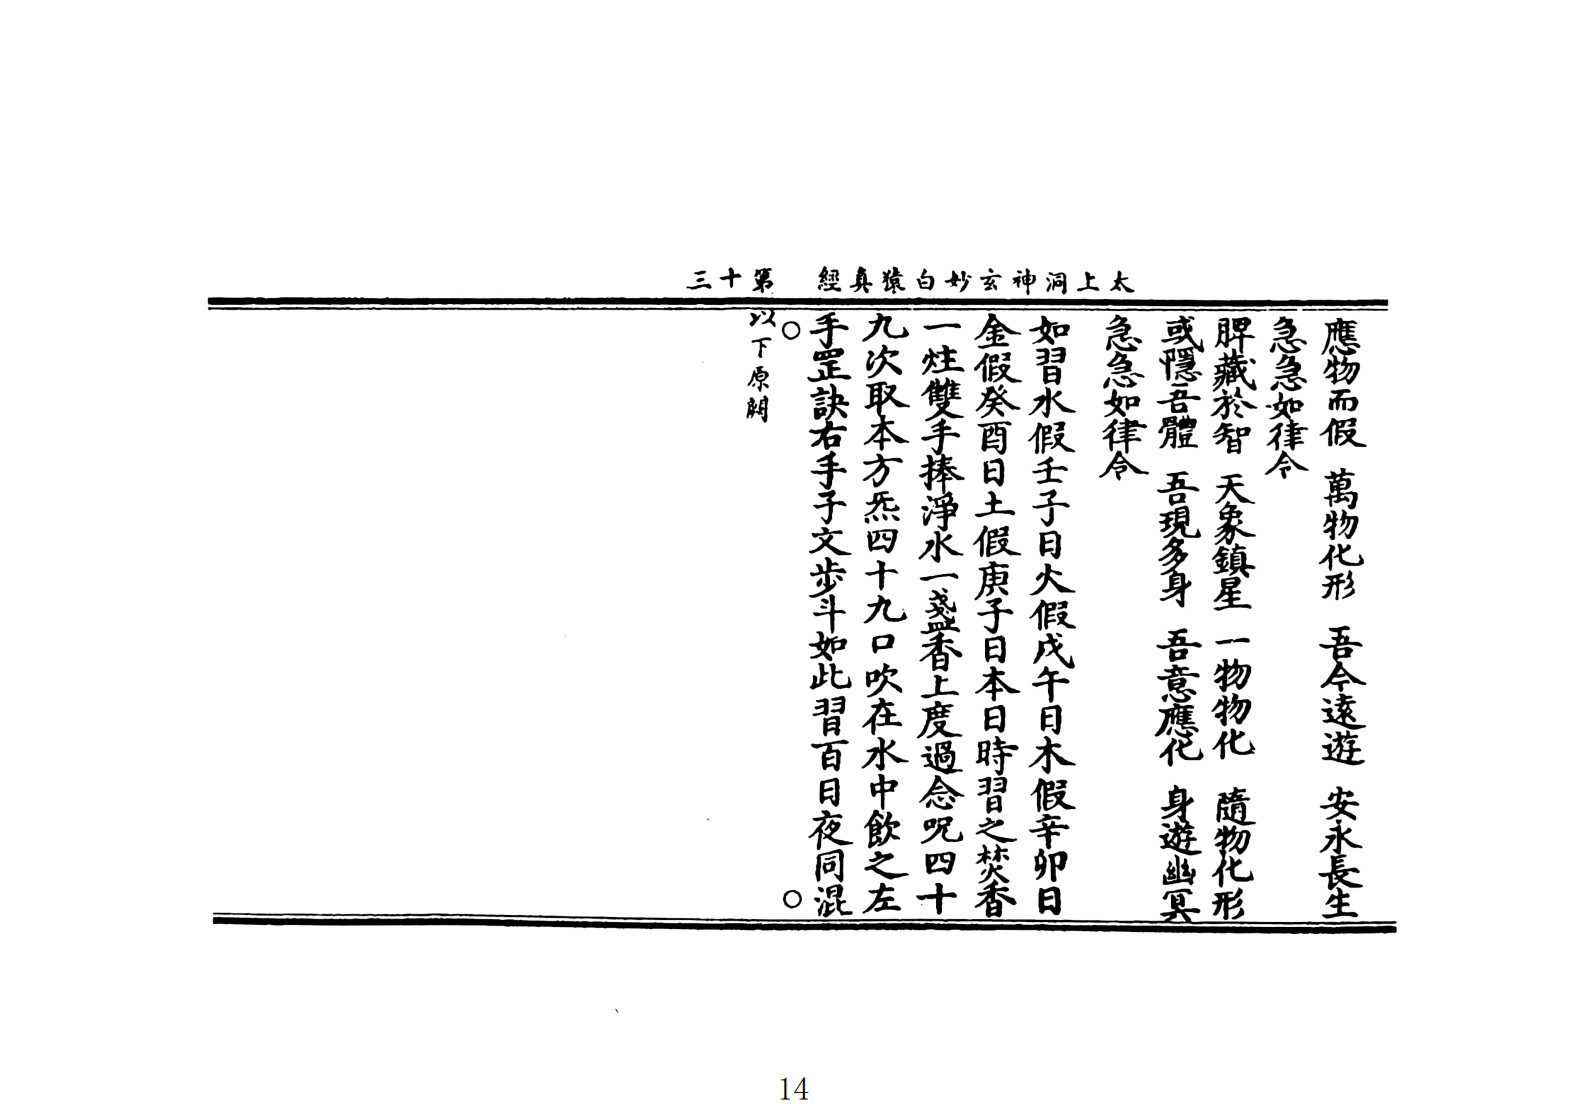 太上洞神玄妙白猿真經　第十三
應物而假　萬物化形　吾今遠遊　安永長生
急急如律令
脾藏於智　天象鎮星　一物物化　隨物化形
或隱吾體　吾現多身　吾意應化　身遊幽冥
急急如律令
如習水假壬子日火假戊午日木假辛卯日
金假癸酉日土假庚子日本日時習之焚香
一炷雙手捧淨水一盞香上度過念呪四十
九次取本方炁四十九口吹在水中飲之左
手罡訣右手子文步斗如此習百日夜同混
○　○
以下原闕
14